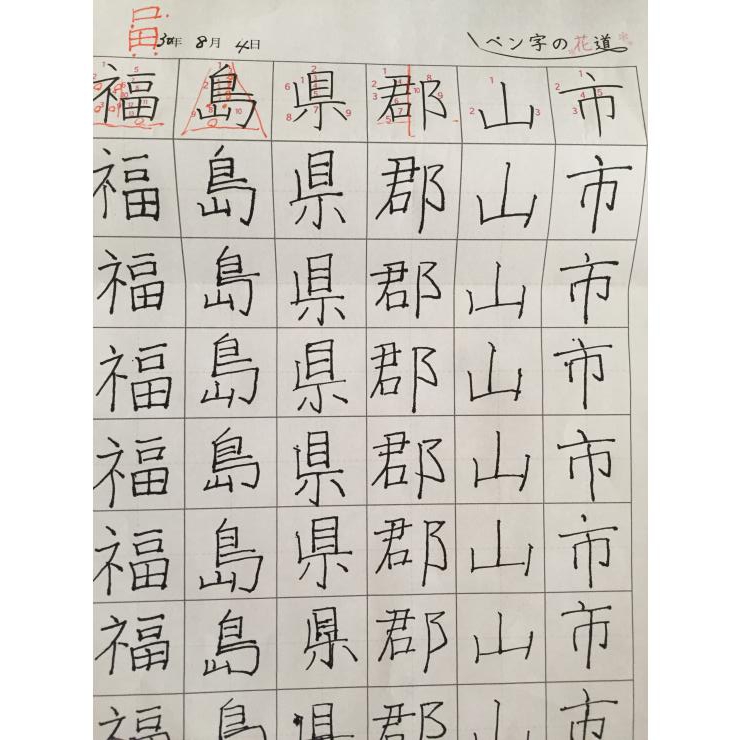 30年 8月 4日 ペン字の花道
福島県郡山市
福島県郡山市
福島県郡山市
福島県郡山市
福島県郡山市
福島県郡山市
福島県郡山市
福島県郡山市